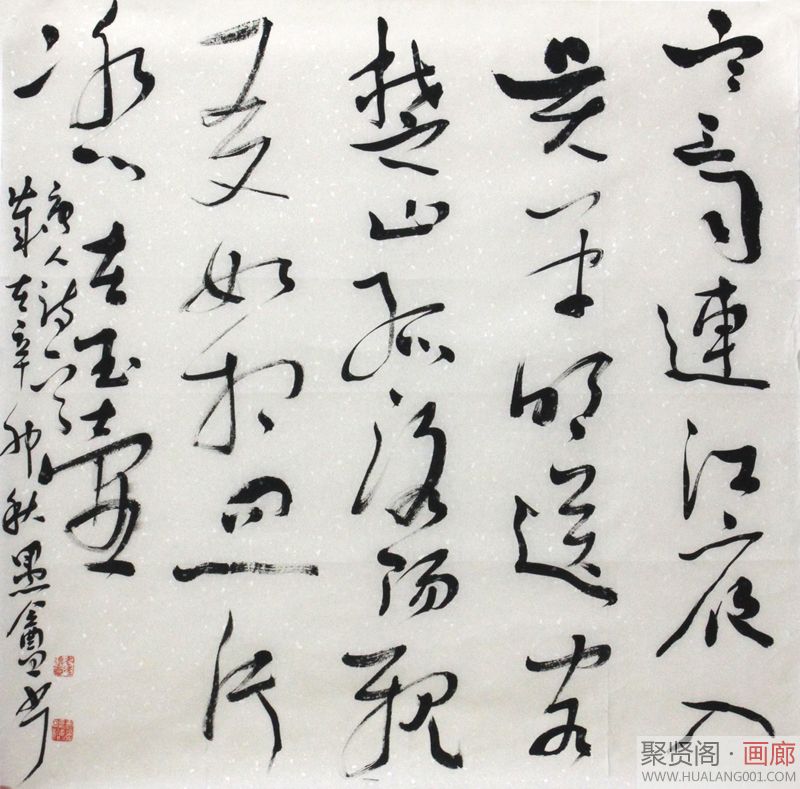 寒雨連江夜入
吴平明送客
楚山孤洛陽親
友如相問一片
冰心在玉壺
唐人诗一首
歲在辛卯秋愚盦书
聚贤阁·画廊
WWW.HUALANG001.COM